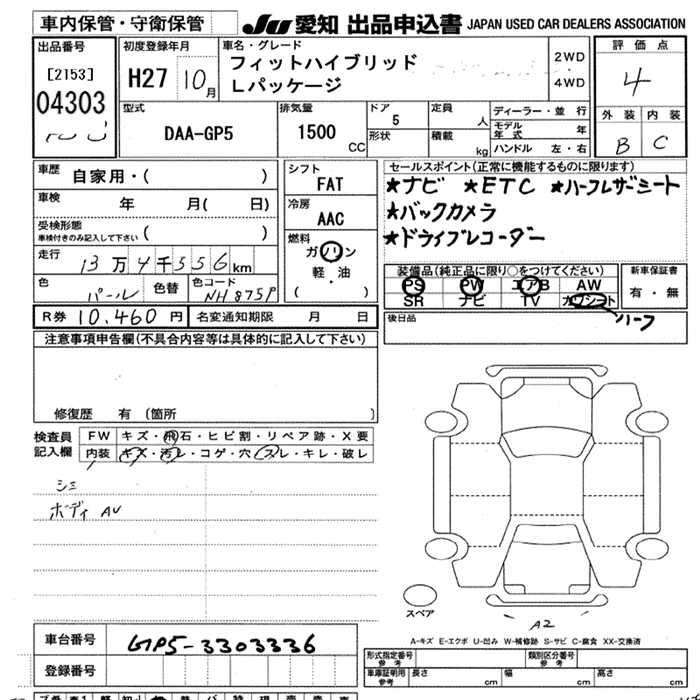 車内保管・守衛保管
JU 愛知 出品申込書 JAPAN USED CAR DEALERS ASSOCIATION
出品番号
[2153]
04303
初度登録年月
H27 10月
車名・グレード
フィットハイブリッド
Lパッケージ
2WD
4WD
評価点
4
外装 内装
B C
型式
DAA-GP5
排気量
1500 CC
ドア
5
形状
定員
人
積載
kg
ディーラー・並行
モデル年式 年
ハンドル 左・右
車歴
自家用・( )
車検
年 月( 日)
受検形態
車検付きのみ記入して下さい ( )
走行
13万4千556km
色
パール
色替
色コード
NH875P
シフト
FAT
冷房
AAC
燃料
ガソリン
軽・油
( )
セールスポイント(正常に機能するものに限ります)
★ナビ ★ETC ★ハーフレザーシート
★バックカメラ
★ドライブレコーダー
装備品(純正品に限り○をつけてください)
PS PW エアB AW
SR ナビ TV カワシート
ハーフ
新車保証書
有・無
R券 10,460円
名変通知期限 月 日
後日品
注意事項申告欄(不具合内容等は具体的に記入して下さい)
修復歴 有(箇所 )
検査員
記入欄
FW キズ・飛石・ヒビ割・リペア跡・X要
内装 キズ・汚レ・コゲ・穴・スレ・キレ・破レ
シミ
ボディ AU
スペア
A2
A-キズ E-エクボ U-凹み W-補修跡 S-サビ C-腐食 XX-交換済
車台番号
GP5-3303336
登録番号
形式指定番号
参考
類別区分番号
参考
車庫証明用
参考
長さ cm
幅 cm
高さ cm